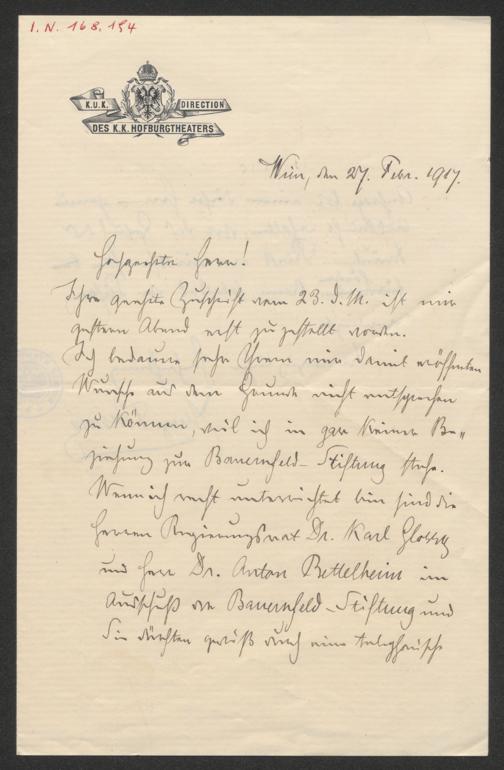 I. N. 168.194
K.U.K. DIRECTION
DES K.K. HOFBURGTHEATERS
Wien, den 27. Febr. 1917.
Hochgeehrter Herr!
Ihre geehrte Zuschrift vom 23. d. M. ist mir
gestern Abend erst zugestellt worden.
Ich bedaure sehr Ihrem mir damit eröffneten
Wunsche aus dem Grunde nicht entsprechen
zu können, weil ich in gar keiner Be„
ziehung zur Bauernfeld-Stiftung stehe.
Wenn ich recht unterrichtet bin sind die
Herren Regierungsrat Dr. Karl Glossy
und Herr Dr. Anton Bettelheim im
Ausschuß der Bauernfeld-Stiftung und
Sie dürften gewiß durch eine telephonische